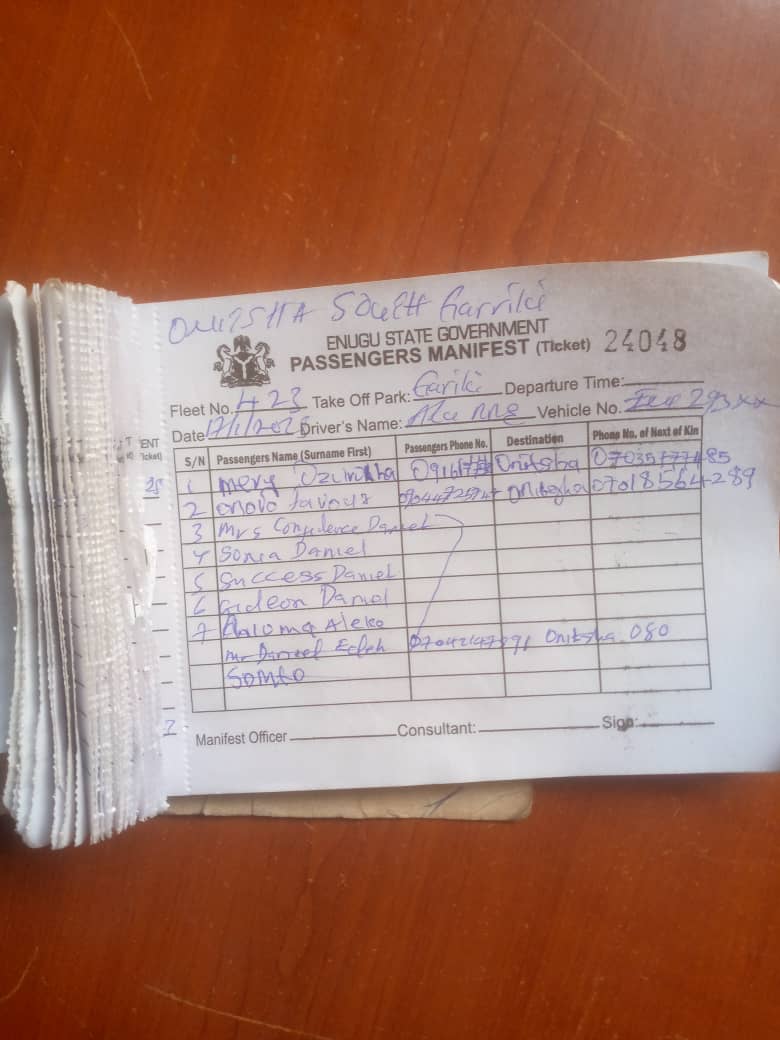 ONITSHA South Garriki
ENUGU STATE GOVERNMENT
PASSENGERS MANIFEST (Ticket) 24048
Fleet No. 423 Take Off Park: Gariki Departure Time:
Date 17/1/2025 Driver's Name: Vehicle No. 293xx
S/N Passengers Name (Surname First) Passengers Phone No. Destination Phone No. of Next of Kin
1 mery Onitsha
2 onovo favour Onitsha 07018564289
3 Mrs Confidence Daniel
4 Sonia Daniel
5 Success Daniel
6 Gideon Daniel
7 Aleko
Mr Daniel Onitsha 080
Somto
Manifest Officer Consultant: Sign:
ENT
icket)